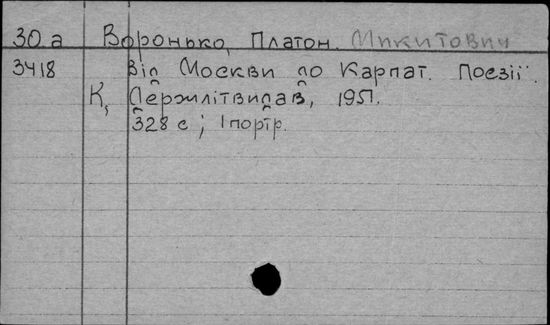 30.а Воронько, Платон Микитович
3418 Від Москви до Карпат. Поезії.
К, Держлітвидав, 1951.
328 с; 1 портр.